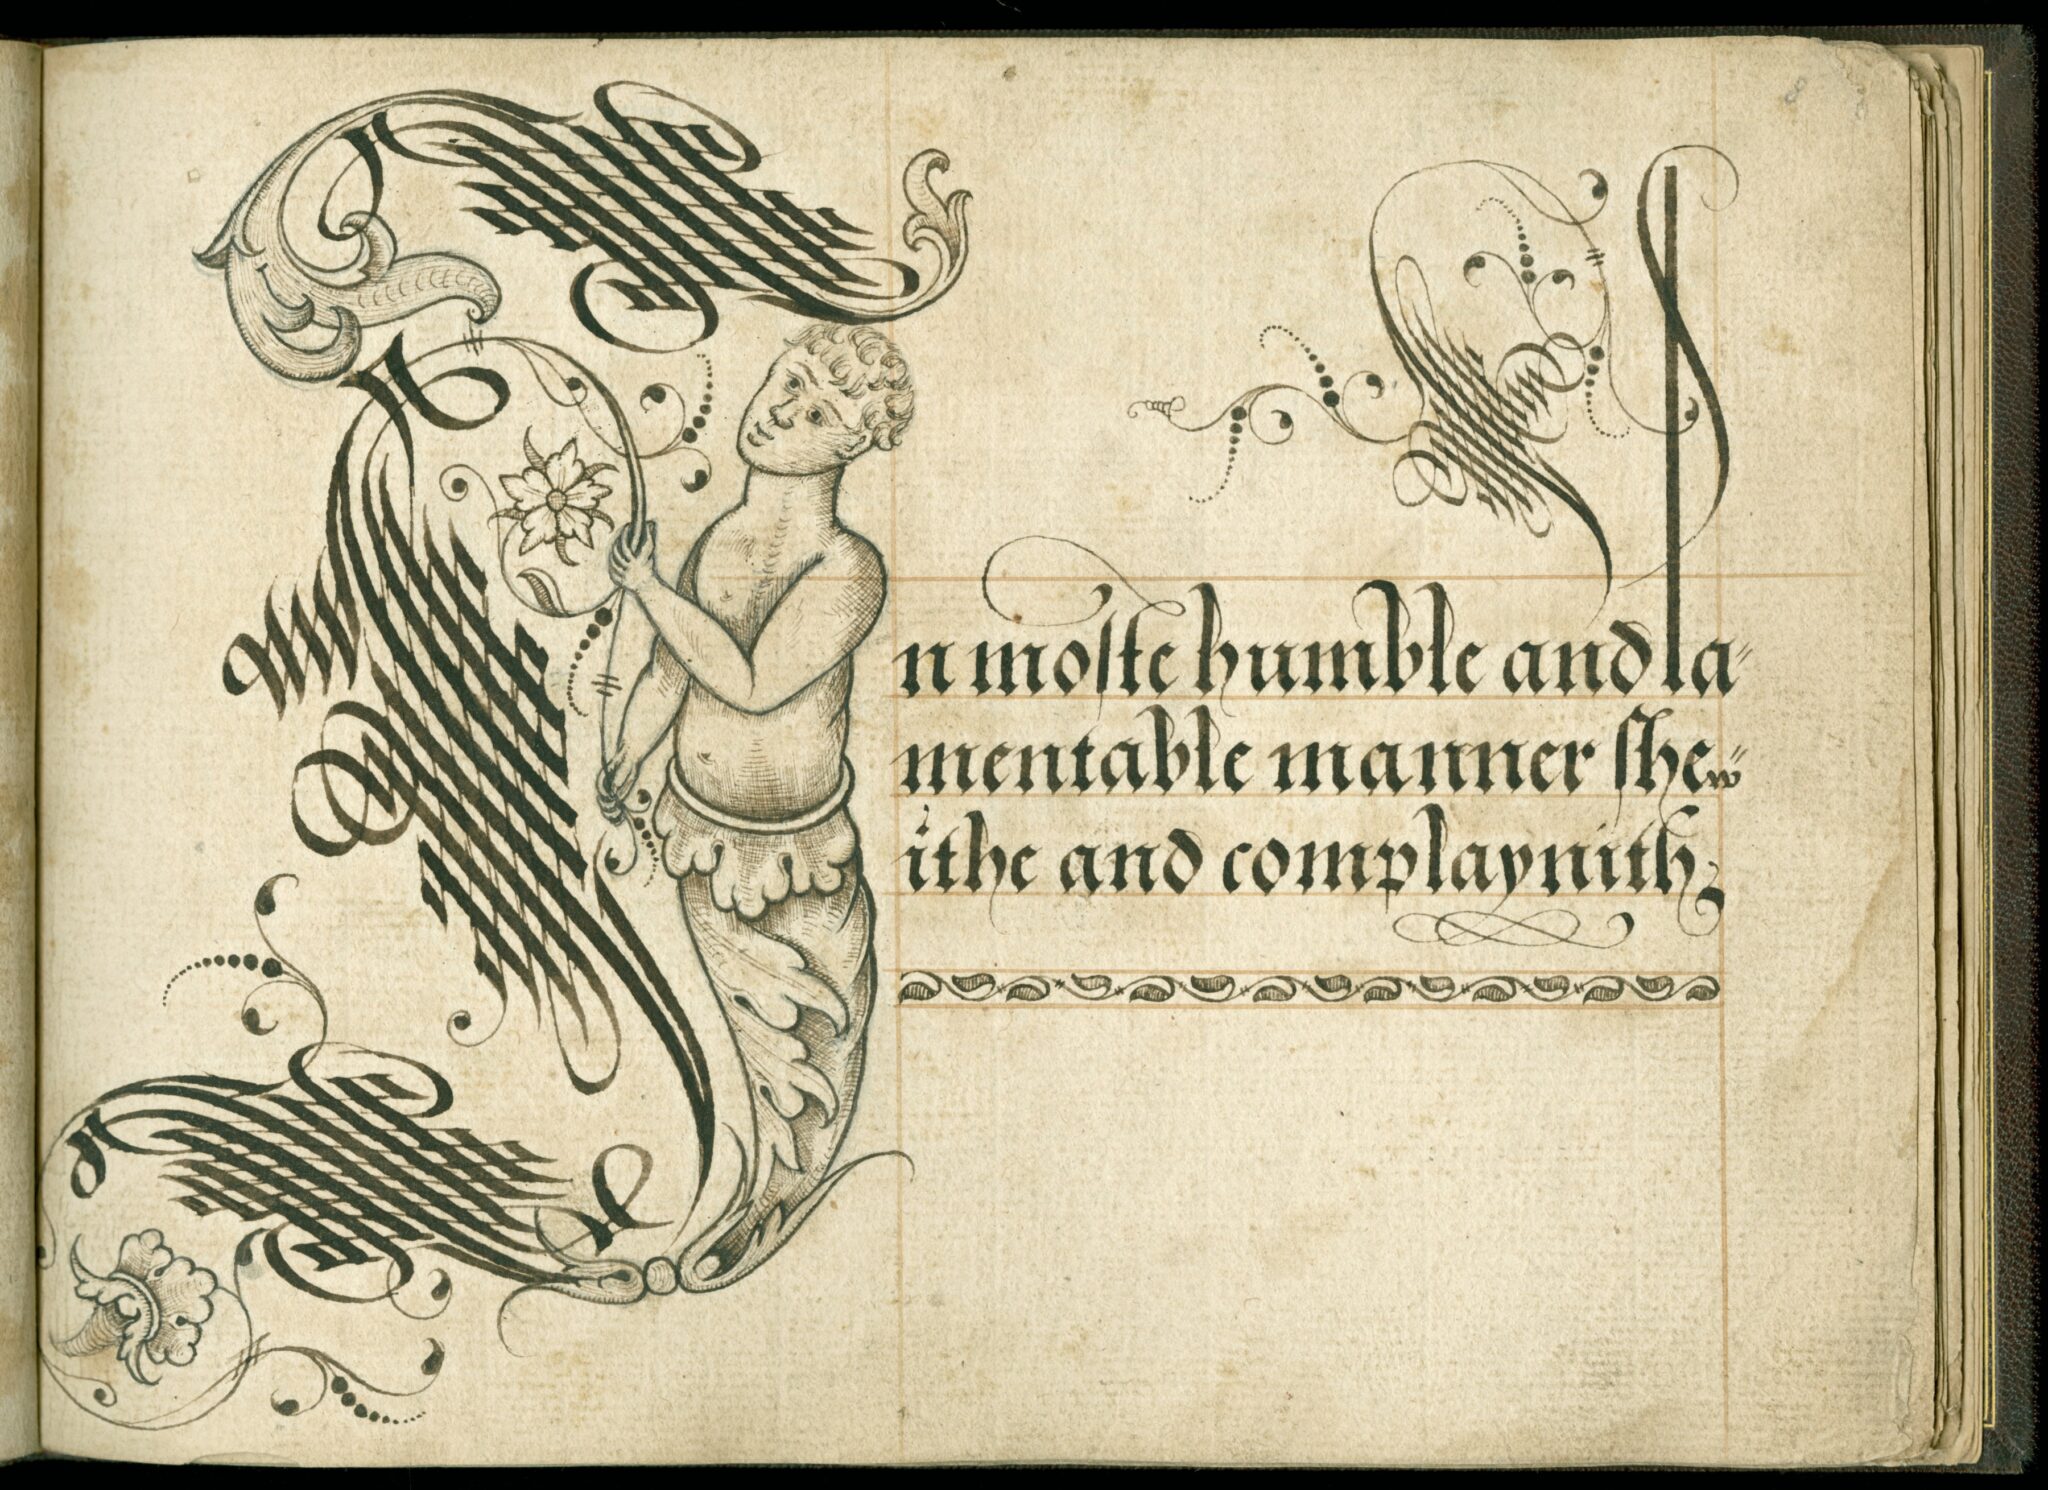 In moste humble and la-
mentable manner shew-
ithe and complaynith,